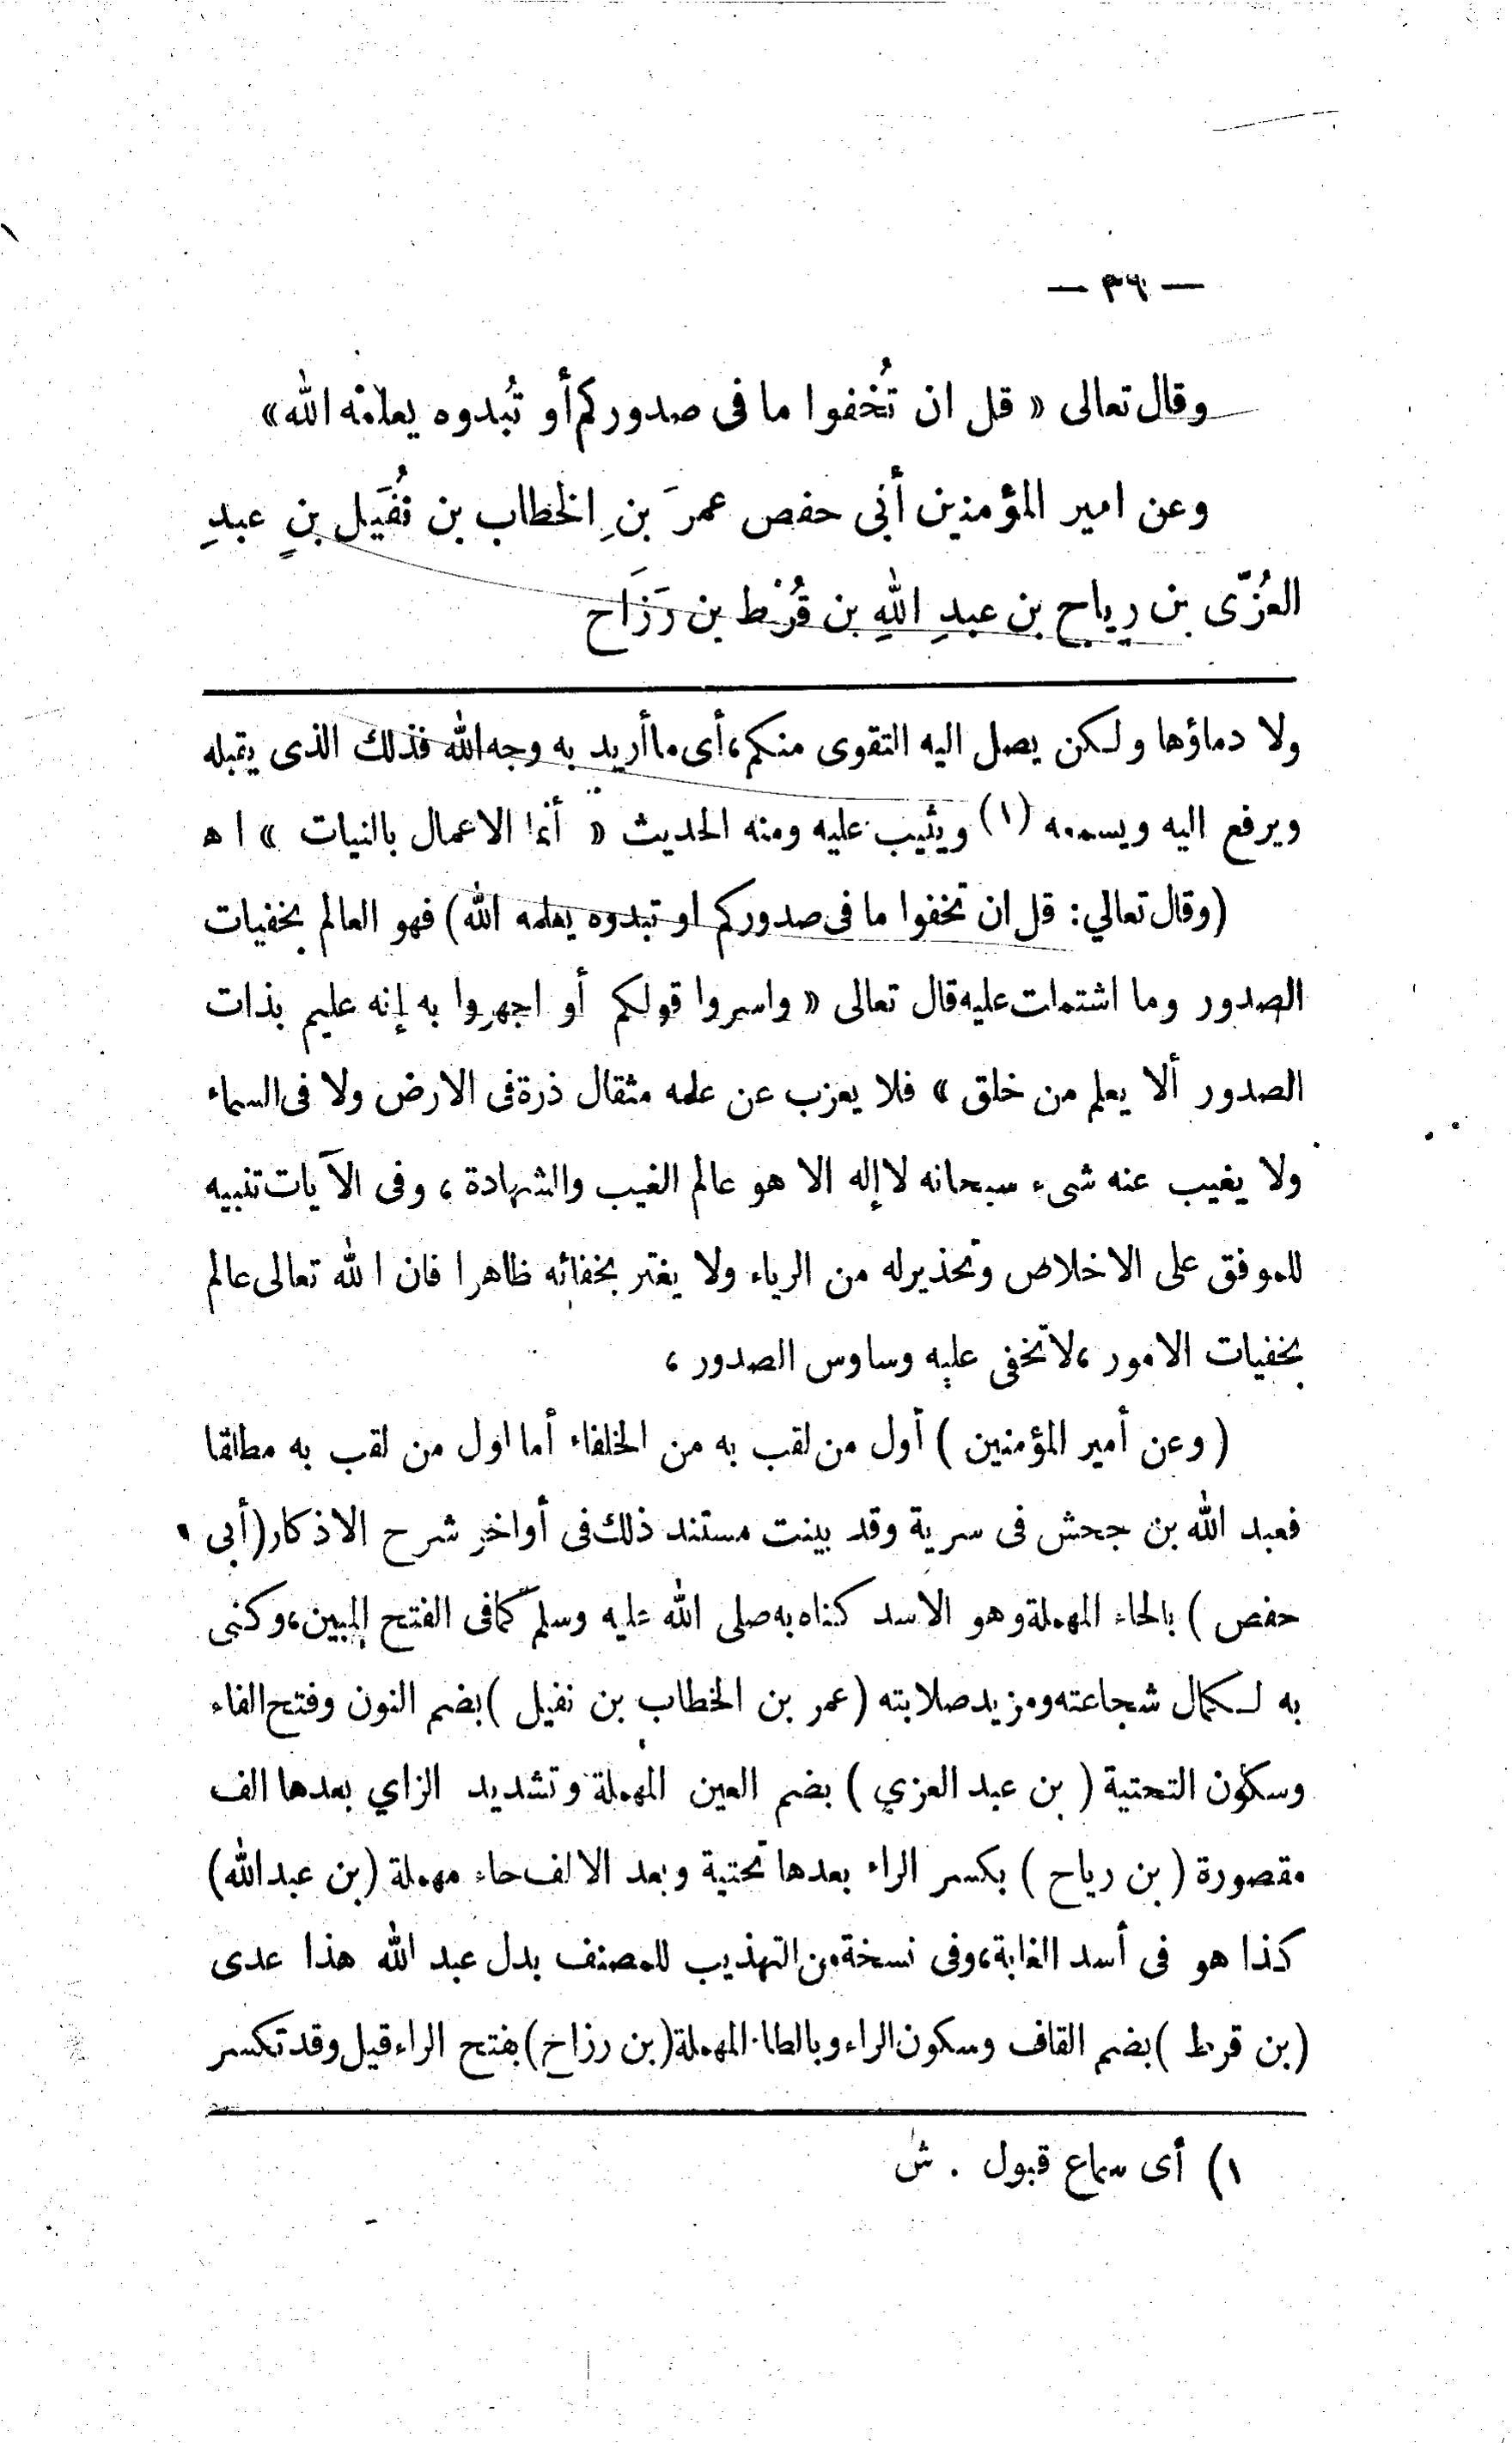 — ٣٦ —
وقال تعالى « قل ان تُخفوا ما فى صدوركم أو تُبدوه يعلمْه الله»
وعن امير المؤمنين أبى حفص عمرَ بنِ الخطاب بن نُفَيل بنِ عبدِ
العُزّى بن رِياح بن عبدِ اللهِ بن قُرْط بن رَزَاح
ولا دماؤها ولـكن يصل اليه التقوى منكم، أى ما أريد به وجه الله فذلك الذى يقبله
ويرفع اليه ويسمعه (١) ويثيب عليه ومنه الحديث « أنما الاعمال بالنيات » اه
(وقال تعالي: قل ان تخفوا ما فى صدوركم او تبدوه يعلمه الله) فهو العالم بخفيات
الصدور وما اشتملت عليه قال تعالى « واسروا قولكم أو اجهروا به إنه عليم بذات
الصدور ألا يعلم من خلق » فلا يعزب عن علمه مثقال ذرة فى الارض ولا فى السماء
ولا يغيب عنه شىء سبحانه لا إله الا هو عالم الغيب والشهادة ، وفى الآيات تنبيه
للموفق على الاخلاص وتحذير له من الرياء ولا يغتر بخفائه ظاهرا فان الله تعالى عالم
بخفيات الامور ، لا تخفى عليه وساوس الصدور ،
( وعن أمير المؤمنين ) أول من لقب به من الخلفاء أما اول من لقب به مطلقا
فعبد الله بن جحش فى سرية وقد بينت مستند ذلك فى أواخر شرح الاذكار (أبى
حفص ) بالحاء المهملة وهو الاسد كناه به صلى الله عليه وسلم كما فى الفتح المبين، وكنى
به لـكمال شجاعته ومزيد صلابته (عمر بن الخطاب بن نفيل ) بضم النون وفتح الفاء
وسكون التحتية ( بن عبد العزي ) بضم العين المهملة وتشديد الزاي بعدها الف
مقصورة ( بن رياح ) بكسر الراء بعدها تحتية وبعد الالف حاء مهملة (بن عبد الله)
كذا هو فى أسد الغابة، وفى نسخة من التهذيب للمصنف بدل عبد الله هذا عدى
(بن قرط ) بضم القاف وسكون الراء وبالطاء المهملة (بن رزاح) بفتح الراء قيل وقد تكسر
١) أى سماع قبول . ش